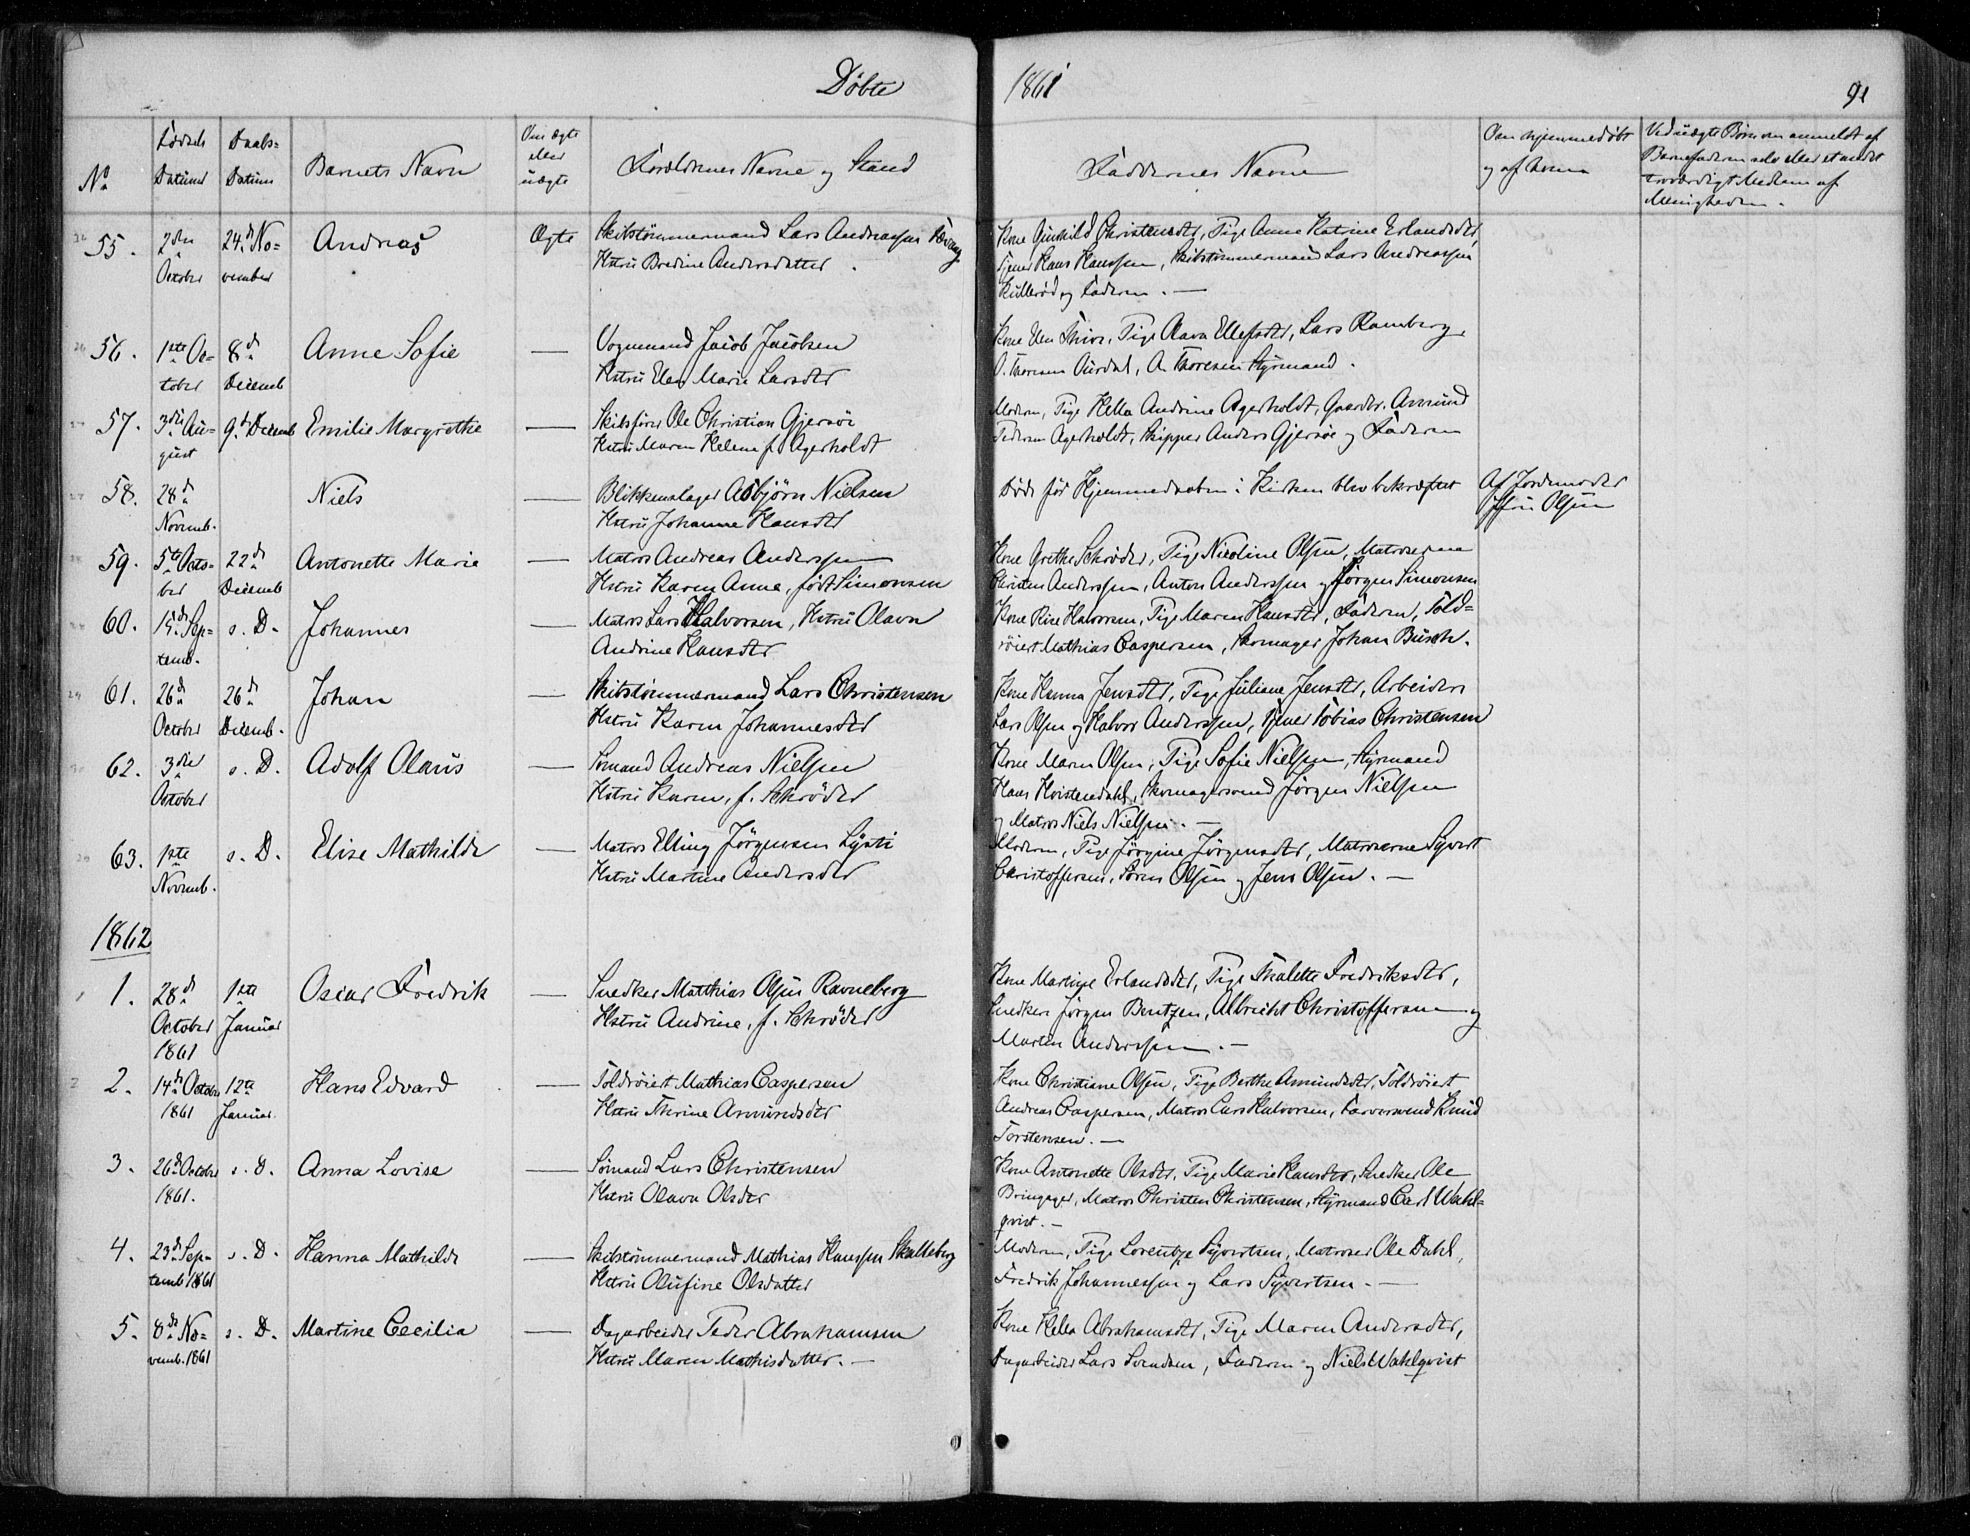 Døbte 1861 91
No
Fødsels Datum
Daabs- Datum
Barnets Navn
Om ægte eller uægte
Forældrenes Navne og Stand
Faddernes Navne
Om hjemmedøbt og af hvem
Ved uægte Børn om anmeldt af
Barnefaderen selv eller et andet
troværdigt Medlem af
Menigheden.
55. 2den October 24d November Andreas Ægte
Skibstømmermand Lars Andreassen
Hstru Bredine Andersdatter.
Kone Gunhild Christensdtr, Tige Anne Katrine Erlandsdtr,
Tjener Hans Hanssen, Skibstømmermand Lars Andreassen
Kullerød og Faderen. —
56. 1ste October 8d Decemb Anne Sofie —
Vognmand Jacob Jacobsen
Hstru Elen Marie Larsdtr
Kone Elen Thive, Tige Olava Ellefsdtr, Lars Ramberg,
O. Thoresen Aurdal, A. Thoresen Styrmand.
57. 3die August 9d Decemb Emilie Margrethe —
Skibsfører Ole Christian Gjersøe
Hstru Maren Helene f. Agerholdt
Moderen, Tige Hella Andrine Agerholdt, Gaardbr. Amund
Pedersen Agerholdt, Skipper Anders Gjersøe og Faderen
58. 28d Novemb. Niels —
Blikkenslager Asbjørn Nielsen
Hstru Johanne Hansdtr
Døde før Hjemmedaaben i Kirken blev bekræftet
Af Jordemoder
Jfru Olsen
59. 5te October 22d Decemb Antonette Marie —
Matros Andreas Anderssen
Hstru Karen Anne, født Simonsen
Kone Grethe Schrøder, Tige Nicoline Olsen, Matroserne
Christen Anderssen, Anton Anderssen og Jørgen Simonsen
60. 15d Septemb. s. D. Johannes —
Matros Lars Halvorsen, Hstru Olava
Andrine Hansdtr
Kone Rise Halvorsen, Tige Maren Hansdtr, Faderen, Told-
røiert Mathias Caspersen, Skomager Johan Busch.
61. 26d October 26d Decemb. Johan —
Skibstømmermand Lars Christensen
Hstru Karen Johannesdtr
Kone Hanna Jensdtr, Tige Juliane Jensdtr, Arbeider
Lars Olsen og Halvor Anderssen, Tjener Tobias Christensen
62. 3die October s. D. Adolf Olaus —
Sømand Andreas Nielsen
Hstru Karen, f. Schrøder
Kone Maren Olsen, Tige Sofie Nielsen, Styrmand
Hans Hvistendahl, Skomagersvend Jørgen Nielsen
og Matros Niels Nielsen. —
63. 1ste Novemb. s. D. Elise Mathilde —
Matros Elling Jørgensen Lysti
Hstru Martine Andersdtr
Moderen, Tige Jørgine Jørgensdtr, Matroserne Syvert
Christoffersen, Søren Olsen og Jens Olsen. —
1862
1. 28d October 1861 1ste Januar Oscar Fredrik —
Snedker Matthias Olsen Ravneberg
Hstru Andrine, f. Schrøder
Kone Martine Erlandsdtr, Tige Thalette Fredriksdtr,
Snedkere Jørgen Bentzen, Albrecht Christoffersen og
Morten Anderssen. —
2. 14d October 1861 12te Januar Hans Edvard —
Toldrøiert Mathias Caspersen
Hstru Thrine Amundsdtr
Kone Christiane Olsen, Tige Berthe Amundsdtr, Toldrøiert
Andreas Caspersen, Matros Lars Halvorsen, Farversvend Knud
Torstensen. —
3. 26d October 1861. s. D. Anna Lovise —
Sømand Lars Christensen
Hstru Olava Olsdtr
Kone Antonette Olsdtr, Tige Marie Hansdtr, Snedker Ole
Bringager, Matros Christen Christensen, Styrmand Carl Wahl-
qvist. —
4. 23d Septemb 1861 s. D. Hanna Mathilde —
Skibstømmermand Mathias Hanssen Skalleberg
Hstru Olufine Olsdatter
Moderen, Tige Lorentze Syvertsen, Matroser Ole Dahl,
Fredrik Johannessen og Lars Syvertsen. —
5. 8de Novemb. 1861 s. D. Martine Cecilia —
Dagarbeider Peder Abrahamsen
Hstru Maren Mathisdatter. —
Kone Hella Abrahamsdtr, Tige Maren Andersdtr,
Dagarbeider Lars Svendsen, Faderen og Niels Wahlqvist